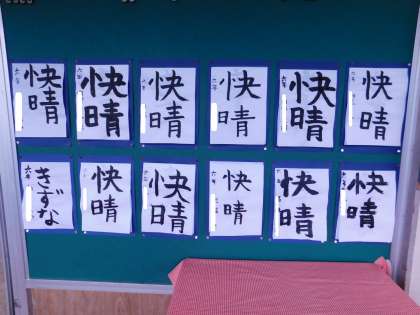 快晴
快晴
快晴
快晴
快晴
快晴
きずな
快晴
快晴
快晴
快晴
快晴